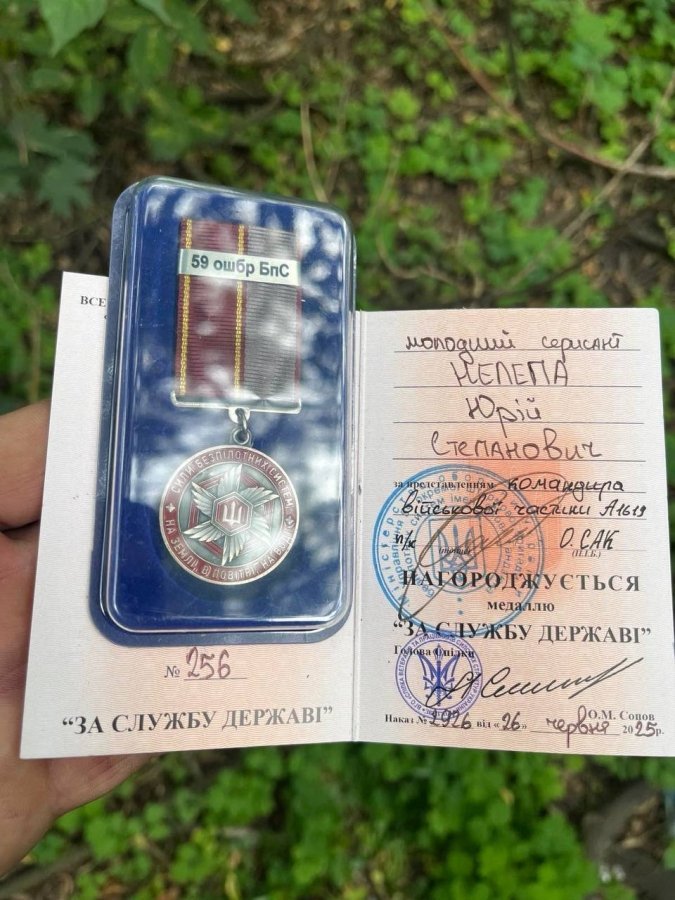 ВСЕ
59 ошбр БпС
СИЛИ БЕЗПІЛОТНИХ СИСТЕМ
НА ЗЕМЛІ, В ПОВІТРІ, НА ВОДІ
№ 256
“ЗА СЛУЖБУ ДЕРЖАВІ”
молодший сержант
НЕПЕПА
Юрій
Степанович
за представленням командира
військової частини А1619
п/к О. САК
(підпис) (П.І.Б.)
НАГОРОДЖУЄТЬСЯ
медаллю
“ЗА СЛУЖБУ ДЕРЖАВІ”
Голова Спілки
О.М. Сопов
Наказ № 2926 від «26» червня 2025р.